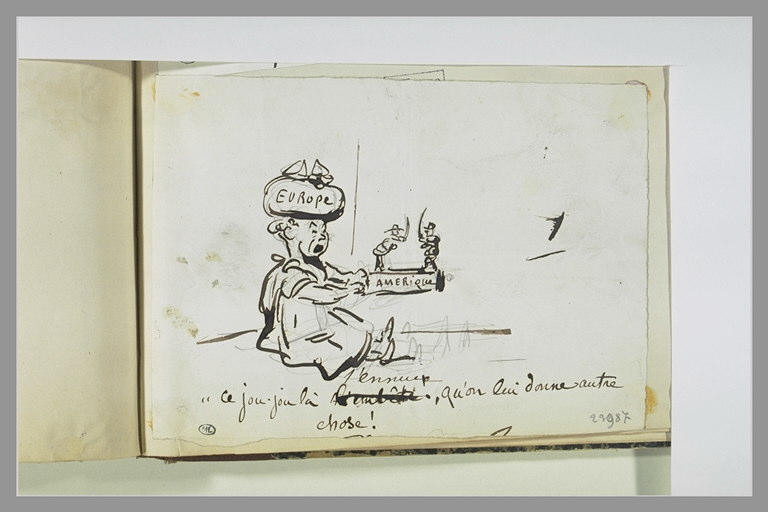 EUROPE
AMERIQUE
l'ennuie
" Ce jou-jou là l'embête., qu'on lui donne autre
chose!
23987